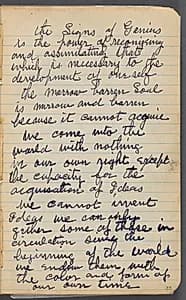 the Signs of Genius
is the power of recognising
and assimilating that
which is necessary to the
development of our self
the narrow barren Soul
is narrow and barren
because it cannot acquire
We come into this
world with nothing
in our own right except
the capacity for the
acquisition of Ideas
We cannot invent
Ideas we can only
gather some of those in
circulation since the
beginning of the world
we endow them with
the color and form of
our own time